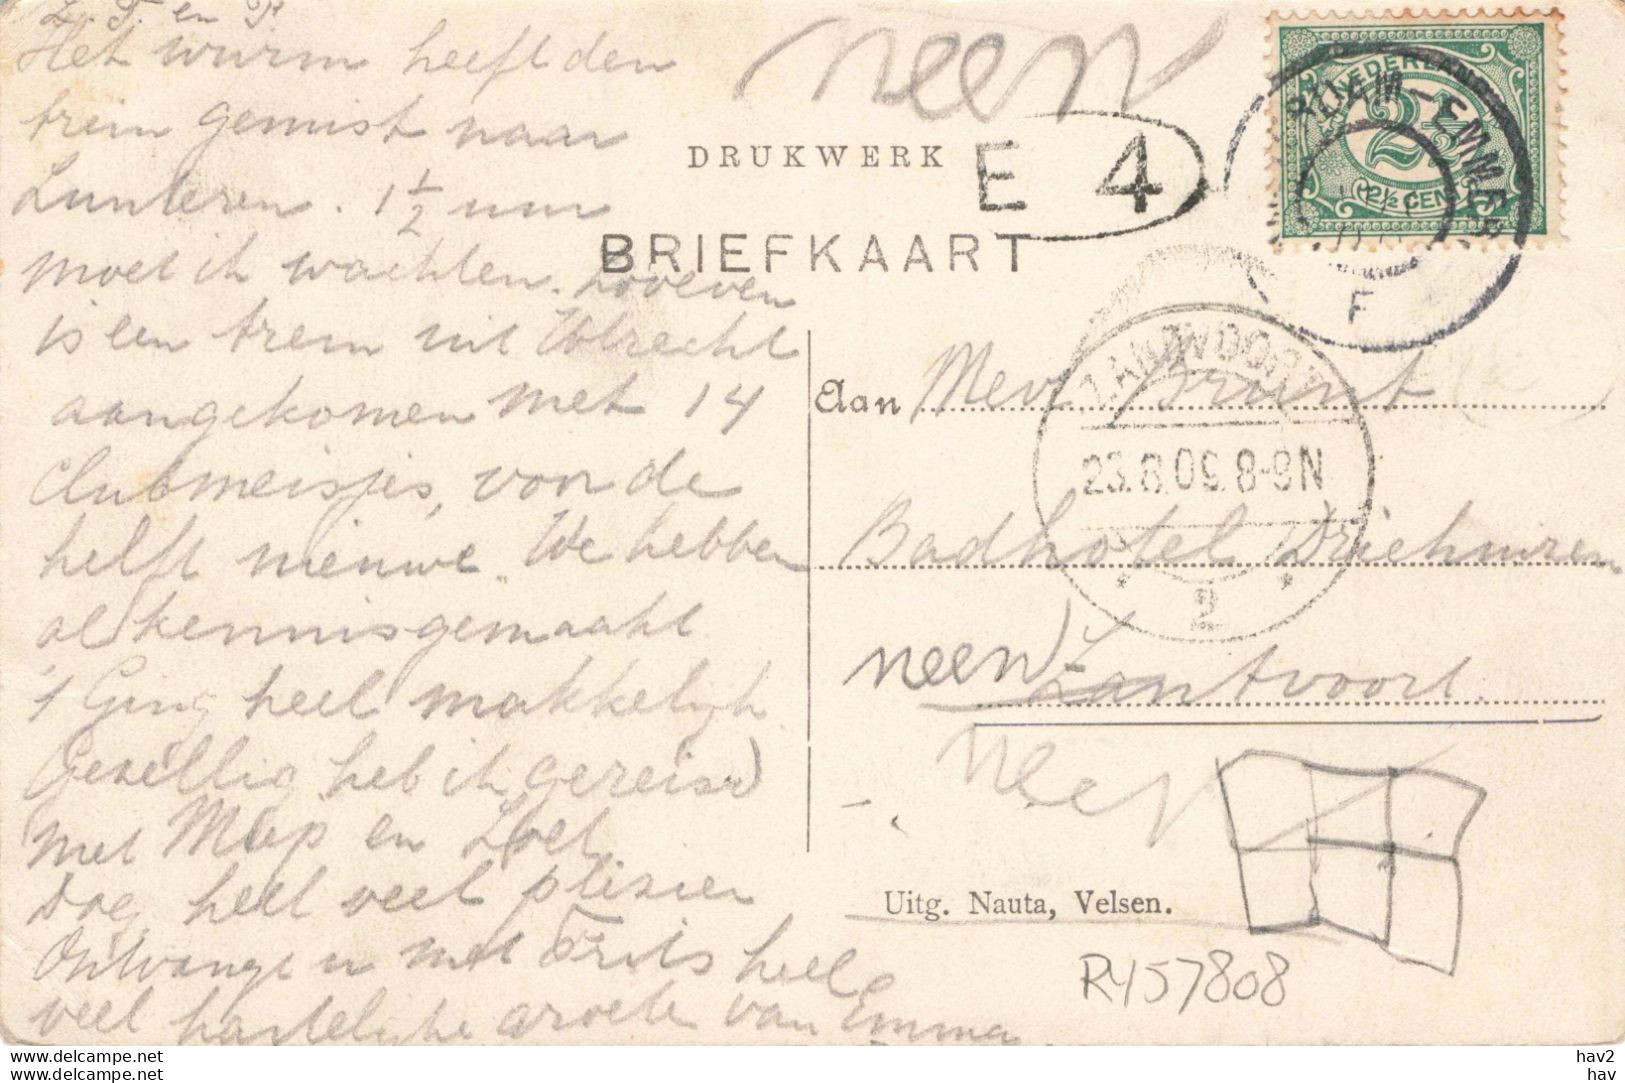 L. T. en P.
Het wurm heeft den
trein gemist naar
Lunteren. 1 1/2 uur
moet ik wachten. Zooeven
is een trein uit Utrecht
aangekomen met 14
Clubmeisjes, von de
helft nieuwe. We hebben
al kennisgemaakt
't Ging heel makkelijk
Gezellig heb ik gereisd
met Miep en Loet
Dag, heel veel plezier
Ontvangt u met Frits heel
veel hartelijke groete van Emma.
neen
DRUKWERK
E 4
BRIEFKAART
NEDERLAND
2½
2½ CENT
RDAM-EMMER
F
ZANDVOORT
23.8.09. 8-9N
2
Aan Mevr Bruint
Badhotel Driehuizen
neen Zantvoort.
Neen
Uitg. Nauta, Velsen.
R457808
hav2
hav